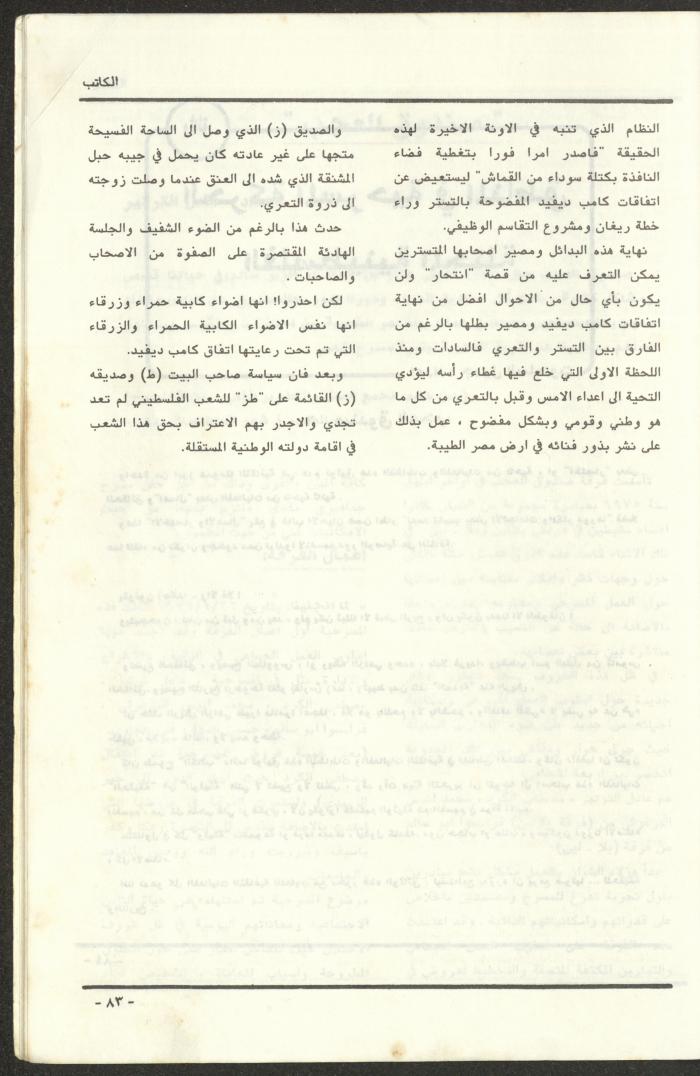 الكاتب
النظام الذي تنبه في الاونة الاخيرة لهذه
الحقيقة "فاصدر امرا فورا بتغطية فضاء
النافذة بكتلة سوداء من القماش" ليستعيض عن
اتفاقات كامب ديفيد المفضوحة بالتستر وراء
خطة ريغان ومشروع التقاسم الوظيفي.
نهاية هذه البدائل ومصير اصحابها المتسترين
يمكن التعرف عليه من قصة "انتحار" ولن
يكون بأي حال من الاحوال افضل من نهاية
اتفاقات كامب ديفيد ومصير بطلها بالرغم من
الفارق بين التستر والتعري فالسادات ومنذ
اللحظة الاولى التي خلع فيها غطاء رأسه ليؤدي
التحية الى اعداء الامس وقبل بالتعري من كل ما
هو وطني وقومي وبشكل مفضوح ، عمل بذلك
على نشر بذور فنائه في ارض مصر الطيبة.
والصديق (ز) الذي وصل الى الساحة الفسيحة
متجها على غير عادته كان يحمل في جيبه حبل
المشنقة الذي شده الى العنق عندما وصلت زوجته
الى ذروة التعري.
حدث هذا بالرغم من الضوء الشفيف والجلسة
الهادئة المقتصرة على الصفوة من الاصحاب
والصاحبات .
لكن احذروا! انها اضواء كابية حمراء وزرقاء
انها نفس الاضواء الكابية الحمراء والزرقاء
التي تم تحت رعايتها اتفاق كامب ديفيد.
وبعد فان سياسة صاحب البيت (ط) وصديقه
(ز) القائمة على "طز" للشعب الفلسطيني لم تعد
تجدي والاجدر بهم الاعتراف بحق هذا الشعب
في اقامة دولته الوطنية المستقلة.
- ٨٣ -